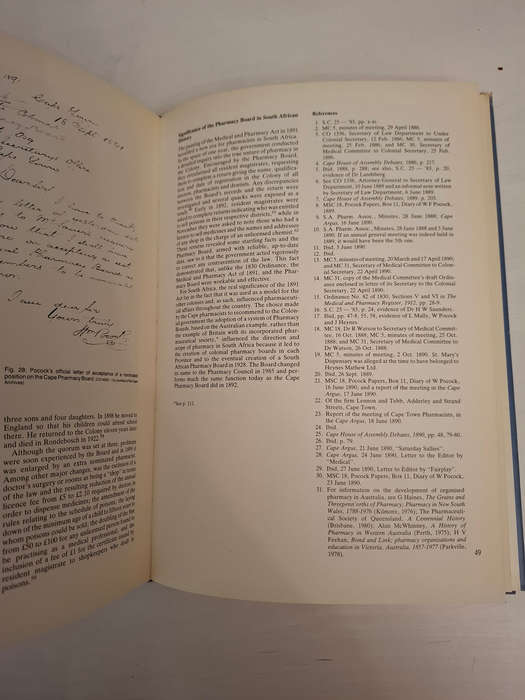 I am, yours faithfully
Fig. 28: Pocock's official letter of acceptance of a nominated
position on the Cape Pharmacy Board
three sons and four daughters. In 1898 he moved to
England so that his children could attend school
there. He returned to the Colony eleven years later
and died in Rondebosch in 1922.
Although the quorum was set at three, problems
were soon experienced by the Board and in 1899 it
was enlarged by an extra nominated pharmacist.
Among other major changes, was the exclusion of a
doctor's surgery or rooms as being a "shop" in terms
of the law and the resulting reduction of the annual
licence fee from £5 to £2 10 required by doctors in
order to dispense medicines; the amendment of the
rules relating to the schedule of poisons; the
down of the minimum age of a child or other to
whom poisons could be sold; the doubling of the fine
from £50 to £100 for any unlicensed person found to
be practising as a medical professional, and the
inclusion of a fee of £1 for the certificate issued by
resident magistrate to shopkeepers who dealt in
poisons.
Significance of the Pharmacy Board in South African
History
The passing of the Medical and Pharmacy Act in 1891
heralded a new era for pharmacists in South Africa.
In the space of one year, the government conducted
official inquiry into the true nature of pharmacy in
the Colony. Encouraged by the Pharmacy Board,
they circularised all resident magistrates, requesting
them to complete a return giving the name, qualifica-
tion and date of registration in the Colony of all
chemists, pharmacists and dentists. Any discrepancies
between the Board's records and the return were
investigated and several quacks were exposed as a
result. Early in 1892, resident magistrates were
asked to complete returns indicating who was entitled
to sell poisons in their respective districts, while in
November they were asked to note those who had a
licence to sell medicines and the names and addresses
of any shop in the charge of an unlicensed chemist.
These returns revealed some startling facts and the
Pharmacy Board, armed with reliable, up-to-date
data, saw to it that the government acted vigorously
to correct any contravention of the law. This fact
demonstrated that, unlike the 1830 Ordinance, the
Medical and Pharmacy Act of 1891, and the Phar-
macy Board were workable and effective.
For South Africa, the real significance of the 1891
Act lay in the fact that it was used as a model for the
other colonies and, as such, influenced pharmaceuti-
cal affairs throughout the country. The choice made
by the Cape pharmacists to recommend to the Colon-
ial government the adoption of a system of Pharmacy
Boards, based on the Australian example, rather than
the example of Britain with its incorporated pharm-
aceutical society, influenced the direction and
scope of pharmacy in South Africa because it led to
the creation of colonial pharmacy boards in each
Province and to the eventual creation of a South
African Pharmacy Board in 1928. The Board changed
its name to the Pharmacy Council in 1985 and per-
forms much the same function today as the Cape
Pharmacy Board did in 1892.
*See p. 111.
References
1. S.C. 25 — '85, pp. x-xi.
2. MC 5, minutes of meeting, 29 April 1886.
3. CO 1336, Secretary of Law Department to Under
Colonial Secretary, 12 Feb. 1886; MC 5, minutes of
meeting, 25 Feb. 1886; and MC 30, Secretary of
Medical Committee to Colonial Secretary, 25 Feb.
1886.
4. Cape House of Assembly Debates, 1886, p. 217.
5. Ibid, 1888, p. 288; see also, S.C. 25 — '85, p. 20,
evidence of Dr Landsberg
6. See CO 1336, Attorney-General to Secretary of Law
Department, 10 June 1889 and an informal note written
by Secretary of Law Department, 6 June 1889.
7. Cape House of Assembly Debates, 1889, p. 205.
8. MSC 18, Pocock Papers, Box 11, Diary of W P Pocock,
1889.
9. S.A. Pharm. Assoc., Minutes, 28 June 1888; Cape
Argus, 16 June 1890.
10. S.A. Pharm. Assoc., Minutes, 28 June 1888 and 5 June
1890. If an annual general meeting was indeed held in
1889, it would have been the 5th one.
11. Ibid. 5 June 1890.
12. Ibid.
13. MC 5, minutes of meeting, 20 March and 17 April 1890;
and MC 31, Secretary of Medical Committee to Colon-
ial Secretary, 22 April 1890.
14. MC 31, copy of the Medical Committee's draft Ordin-
ance enclosed in letter of its Secretary to the Colonial
Secretary, 22 April 1890.
15. Ordinance No. 82 of 1830, Sections V and VI in The
Medical and Pharmacy Register, 1912, pp. 28-9.
16. S.C. 25 — '85, p. 24, evidence of Dr H W Saunders.
17. Ibid. pp. 47-8, 55, 58, evidence of L Malb, W Pocock
and J Heynes.
18. MC 18, Dr B Watson to Secretary of Medical Commit-
tee, 16 Oct. 1888, MC 5, minutes of meeting, 25 Oct.
1888; and MC 31, Secretary of Medical Committee to
Dr Watson, 26 Oct. 1888.
19. MC 5, minutes of meeting, 2 Oct. 1890. St. Mary's
Dispensary was alleged at the time to have belonged to
Heynes Mathew Ltd.
20. Ibid. 26 Sept. 1889.
21. MSC 18, Pocock Papers, Box 11, Diary of W Pocock,
16 June 1890; and a report of the meeting in the Cape
Argus, 17 June 1890.
22. Of the firm Lennon and Tebb, Adderley and Strand
Streets, Cape Town.
23. Report of the meeting of Cape Town Pharmacists, in
the Cape Argus, 18 June 1890.
24. Ibid.
25. Cape House of Assembly Debates, 1890, pp. 48, 79-80.
26. Ibid. p. 79.
27. Cape Argus, 21 June 1890, "Saturday Sallies".
28. Cape Argus, 24 June 1890, Letter to the Editor by
"Medical".
29. Ibid. 27 June 1890, Letter to Editor by "Fairplay".
30. MSC 18, Pocock Papers, Box 11, Diary of W Pocock,
23 June 1890.
31. For information on the development of organised
pharmacy in Australia, see G Haines, The Grains and
Threepenn'orths of Pharmacy, Pharmacy in New South
Wales, 1788-1976 (Kilmore, 1976); The Pharmaceuti-
cal Society of Queensland, A Centennial History
(Brisbane, 1980); Alan McWhinney, A History of
Pharmacy in Western Australia (Perth, 1975); H V
Feehan, Bond and Link; pharmacy organisations and
education in Victoria, Australia, 1857-1977 (Parkville,
1978).
49